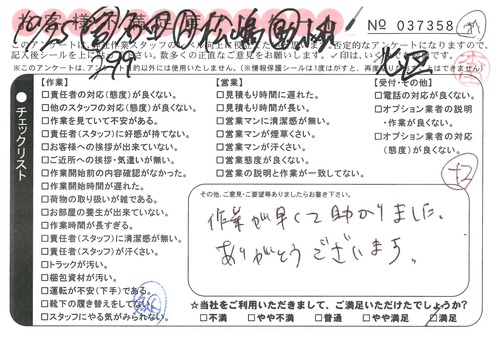 お客様
No 037358
このアンケートは
否定的なアンケートになりますので
記入後シールを
数多くの正直なご意見をお願いします。✓印は、
※このアンケートは、
以外には使用いたしません。(※情報保護シールは1度はがすと、再度
はできません
北区
チェックリスト
【作業】
□責任者の対応(態度)が良くない。
□他のスタッフの対応(態度)が良くない。
□作業を見ていて不安がある。
□責任者(スタッフ)に好感が持てない。
□お客様への挨拶が出来ていない。
□ご近所への挨拶・気遣いが無い。
□作業開始前の内容確認がなかった。
□作業開始時間が遅れた。
□荷物の取り扱いが雑である。
□お部屋の養生が出来ていない。
□作業時間が長すぎる。
□責任者(スタッフ)に清潔感が無い。
□責任者(スタッフ)が汗くさい。
□トラックが汚い。
□梱包資材が汚い。
□運転が不安(下手)である。
□靴下の履き替えをしてない。
□スタッフにやる気がみられない。
【営業】
□見積もり時間に遅れた。
□見積もり時間が長い。
□営業マンに清潔感が無い。
□営業マンが煙草くさい。
□営業マンが汗くさい。
□営業態度が良くない。
□営業の説明と作業が一致してない。
【受付・その他】
□電話の対応が良くない。
□オプション業者の説明
・作業が良くない。
□オプション業者の対応
(態度)が良くない。
その他、ご意見・ご要望等ありましたらお書き下さい。
作業が早くて助かりました。
ありがとうございます。
☆当社をご利用いただきまして、ご満足いただけたでしょうか?
□不満 □やや不満 □普通 □やや満足 □満足